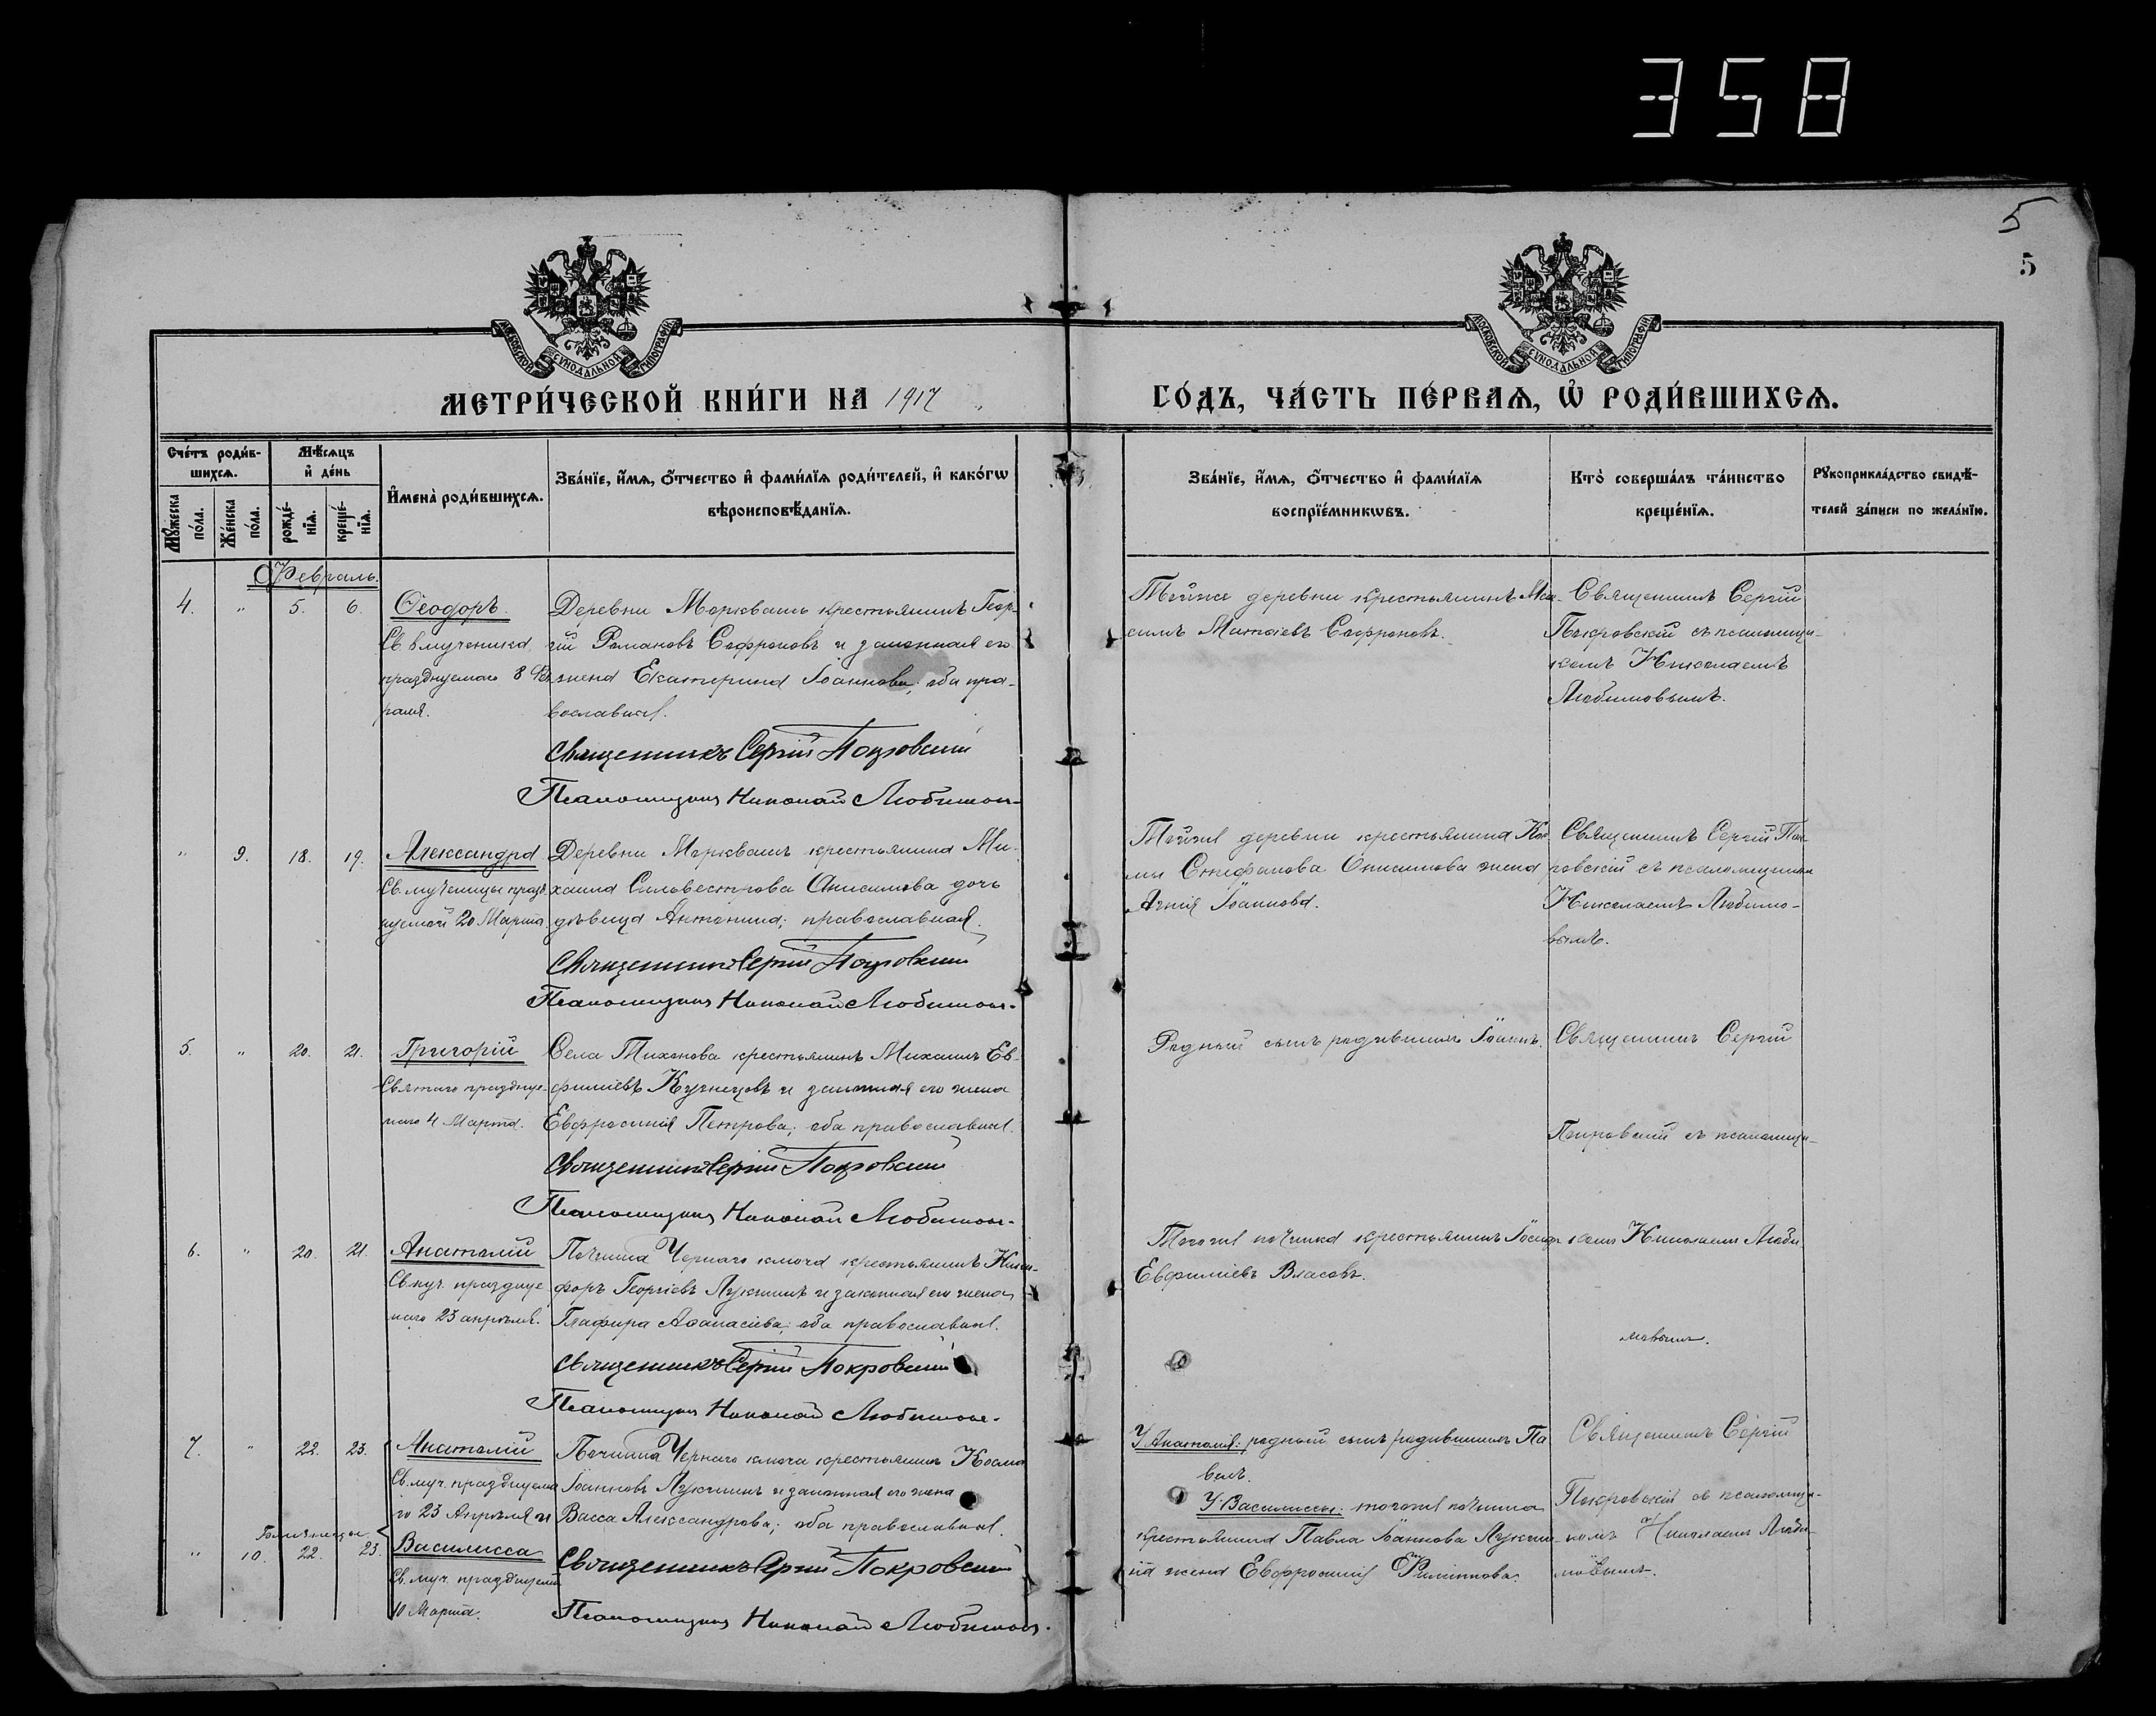 358
5
5
МОСКОВСКОЙ СѴНОДАЛЬНОЙ ТИПОГРАФІИ
МОСКОВСКОЙ СѴНОДАЛЬНОЙ ТИПОГРАФІИ
МЕТРИ́ЧЕСКОЙ КНИ́ГИ НА 1917
ГО́ДЪ, ЧА́СТЬ ПЕ́РВАѦ, Ѡ҆ РОДИ́ВШИХСѦ.
Сче́тъ роди́в-
шихсѧ.
Мѣ́сѧцъ
и҆ де́нь
Мꙋ́жеска по́ла.
Же́нска по́ла.
рожде́-нїѧ.
креще́-нїѧ.
И҆мена̀ роди́вшихсѧ.
Зва́нїе, и҆́мѧ, ѻ҆́тчество и҆ фами́лїѧ роди́телей, и҆ како́гѡ
вѣроисповѣ́данїѧ.
Зва́нїе, и҆́мѧ, ѻ҆́тчество и҆ фами́лїѧ
воспрїе́мникѡвъ.
Кто̀ соверша́лъ та́инство
креще́нїѧ.
Рꙋкоприкла́дство свидѣ́-
телей за́писи по жела́нїю.
Февраль.
4. " 5. 6. Ѳеодоръ.
Св. вмученика
празднуемаго 8 Фев
раля.
Деревни Моркваши крестьянинъ Геор-
гій Романовъ Софроновъ и законная его
жена Екатерина Іоаннова; оба пра-
вославные.
Священникъ Сергій Покровскій
Псаломщикъ Николай Любимовъ
Тойже деревни крестьянинъ
Матѳіевъ Софроновъ.
Священникъ Сергій
Покровскій съ псаломщи-
комъ Николаемъ
Любимовымъ.
" 9. 18. 19. Александра
Св. мученицы празд
нуемой 20 Марта
Деревни Моркваши крестьянина Ми-
хаила Сильвестрова Анисимова дочь
дѣвица Антонина; православная.
Священникъ Сергій Покровскій
Псаломщикъ Николай Любимовъ
Тойже деревни крестьянина Коз
мы Стефанова Онисимова жена
Іоаннова.
Священникъ Сергій Пок
ровскій съ псаломщикомъ
Николаемъ Любимо-
вымъ.
5. " 20. 21. Григорій
Святаго праздцуе-
маго 4 Марта.
Села Тиханова крестьянинъ Михаилъ Ев-
фиміевъ Кузнецовъ и законная его жена
Евфросинія Петрова; оба православные.
Священникъ Сергій Покровскій
Псаломщикъ Николай Любимовъ
Родной сынъ родившихъ Іоаннъ.
Священникъ Сергій
Покровскій съ псаломщи-
6. " 20. 21. Анатолій
Св. муч. празднуе
маго 23 апрѣля.
Починка Чернаго ключа крестьянинъ Ники-
форъ Георгіевъ Лукинъ и законная его жена
Глафира Аѳанасіева; оба православные.
Священникъ Сергій Покровскій
Псаломщикъ Николай Любимовъ
Тогоже починка крестьянинъ Іосифъ
Евфиміевъ Власовъ.
комъ Николаемъ Люби
мовымъ.
7. " 22. 23. Анатолій
Св. муч. празднуема
го 23 Апрѣля и
Близнецы.
" 10. 22. 23. Василисса
Св. муч. празднуемой
10 Марта.
Починка Чернаго ключа крестьянинъ Косма
Іоанновъ Лукинъ и законная его жена
Васса Александрова; оба православные.
Священникъ Сергій Покровскій
Псаломщикъ Николай Любимовъ.
У Анатолія: родной сынъ родившихъ Па
велъ.
У Василиссы: тогоже починка
крестьянина Павла Іоаннова Лукин
на жена Евфросинія Филиппова.
Священникъ Сергій
Покровскій съ псаломщи-
комъ Николаемъ Люби-
мовымъ.